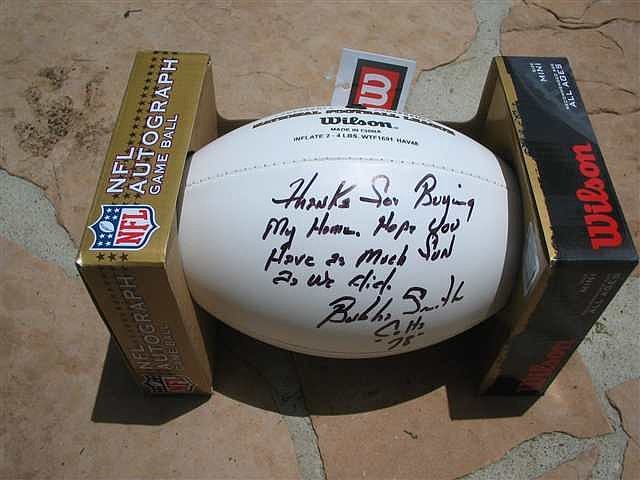 NFL AUTOGRAPH
GAME BALL
NFL
NFL AUTOGRAPH
GAME BALL
NFL
W
Wilson
MADE IN CHINA
INFLATE 2 - 4 LBS. WTF1691 HAV48
Thanks For Buying
My Home. Hope you
Have as Much Sun
as We did.
Bubba Smith
"Colts
78"
MINI
ALL AGES
Wilson
MINI
ALL AGES
Wilson